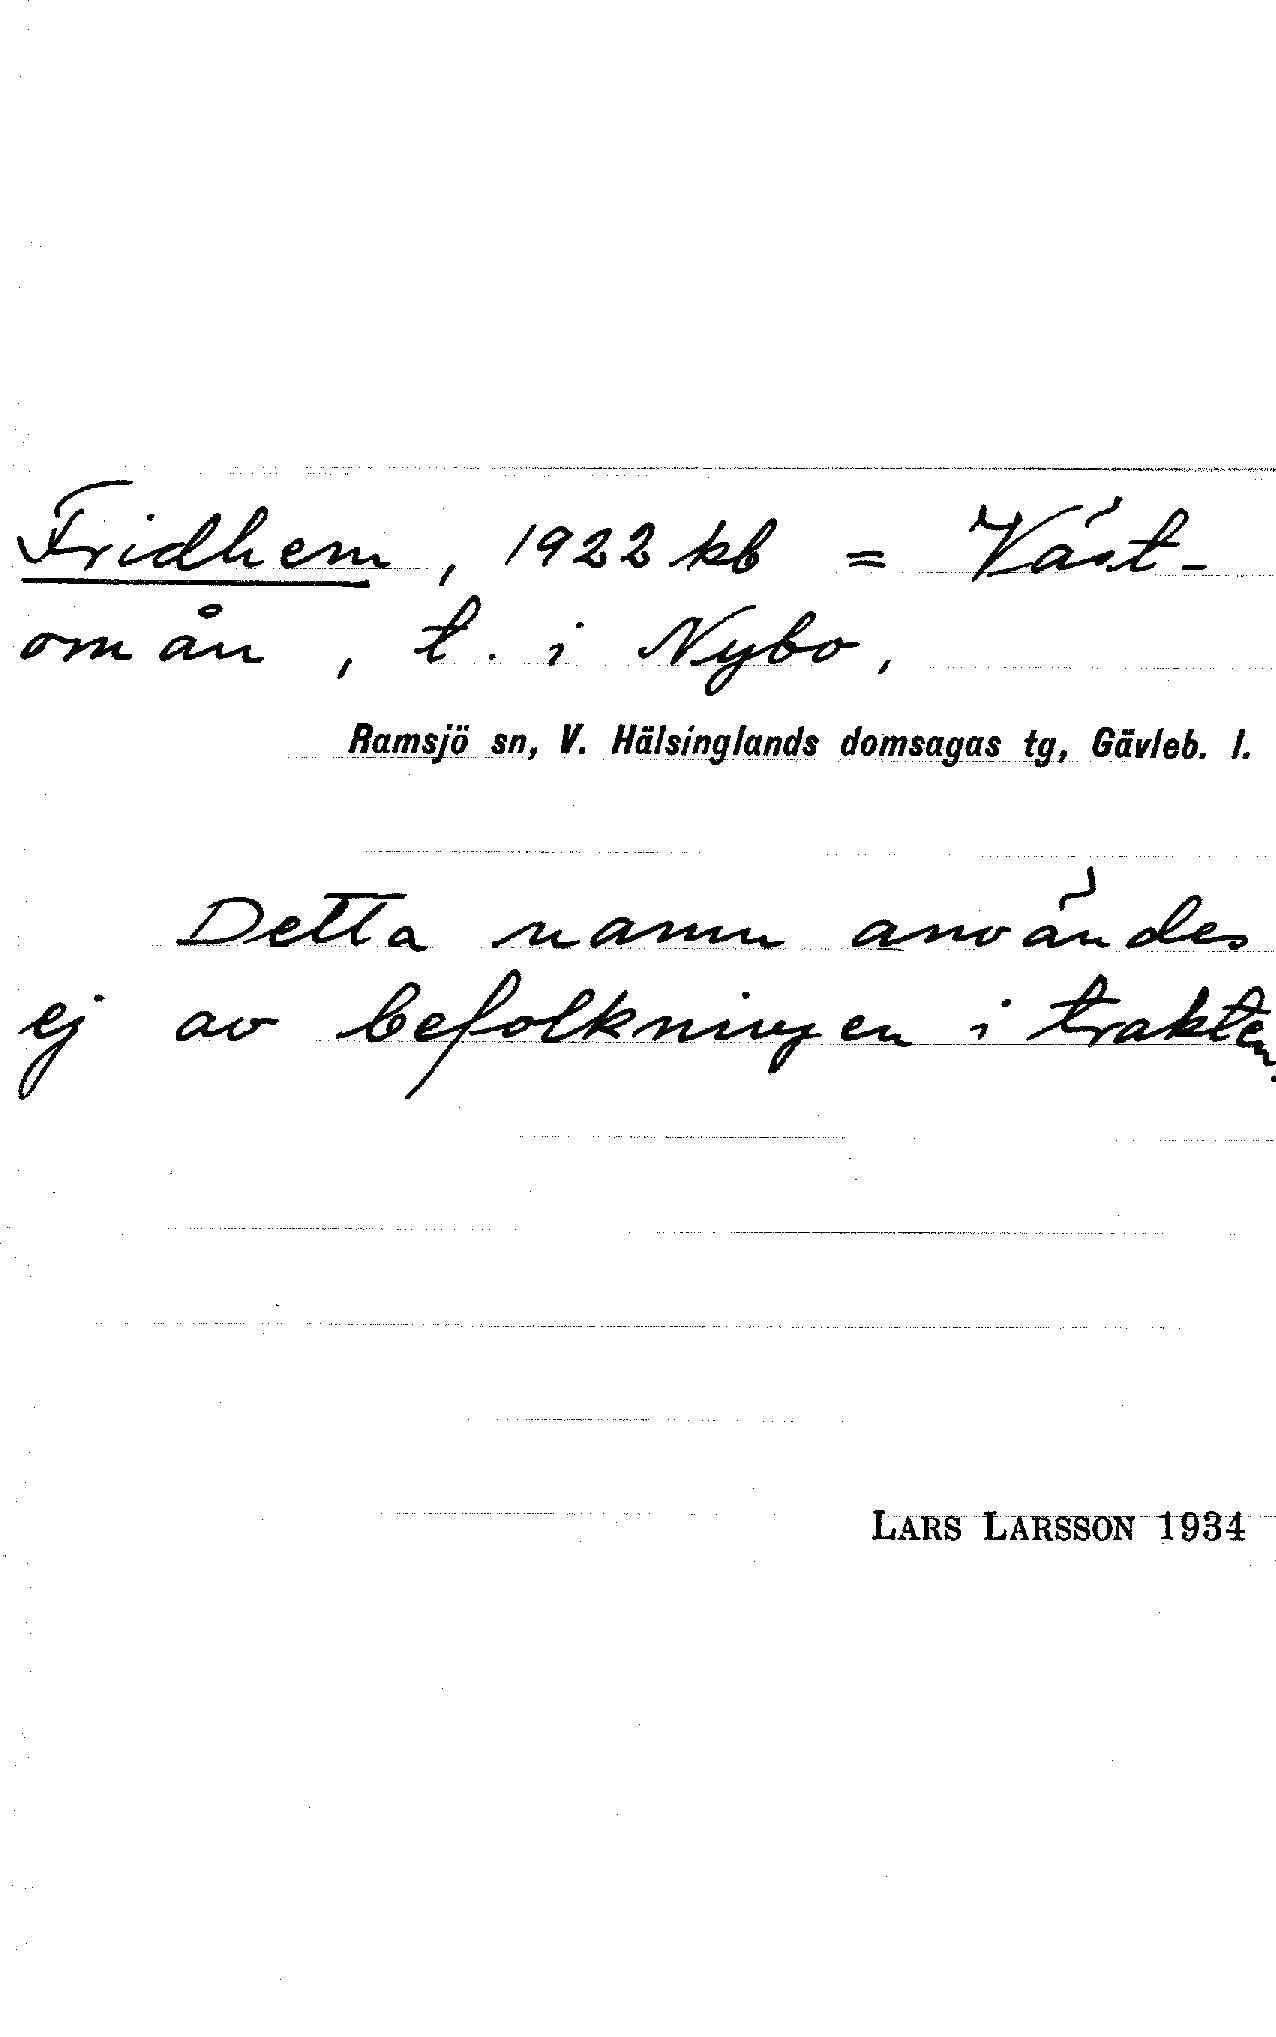 Fridhem, 1922 kb = Väst-
omån, t. i Nybo,
Ramsjö sn, V. Hälsinglands domsagas tg, Gävleb. l.
Detta namn användes
ej av befolkningen i trakten.
LARS LARSSON 1934